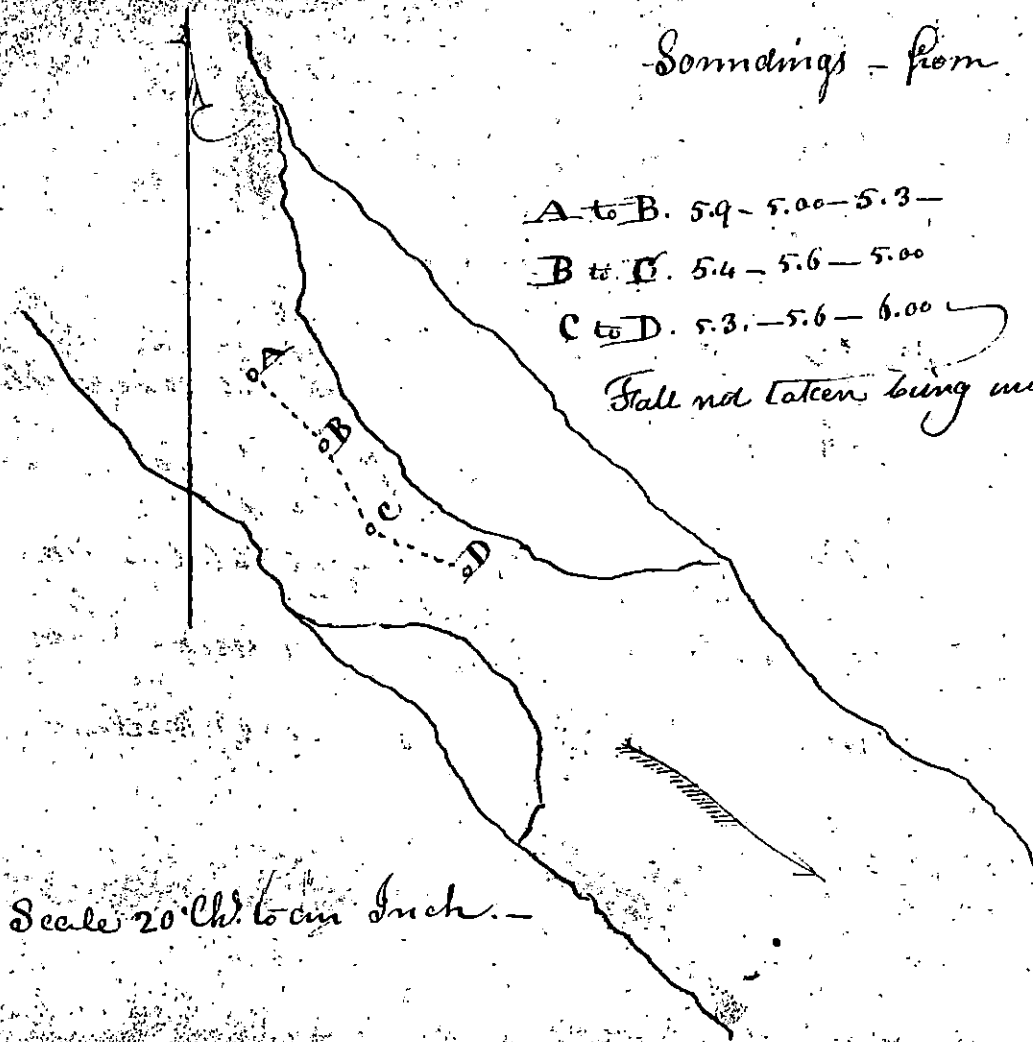 Soundings - from
A to B. 5.9 - 5.00 - 5.3 -
B to C. 5.4 - 5.6 - 5.00
C to D. 5.3. - 5.6 - 6.00
Fall not taken being
A
B
C
D
Scale 20 Chs. to an Inch. -